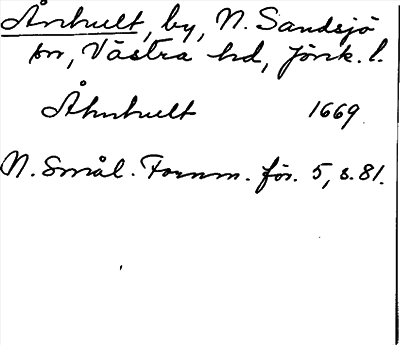 Ånhult, by, N. Sandsjö
sn, Västra hd, Jönk. l.
Åhnhult 1669
N. Smål. Fornm. för. 5, s. 81.